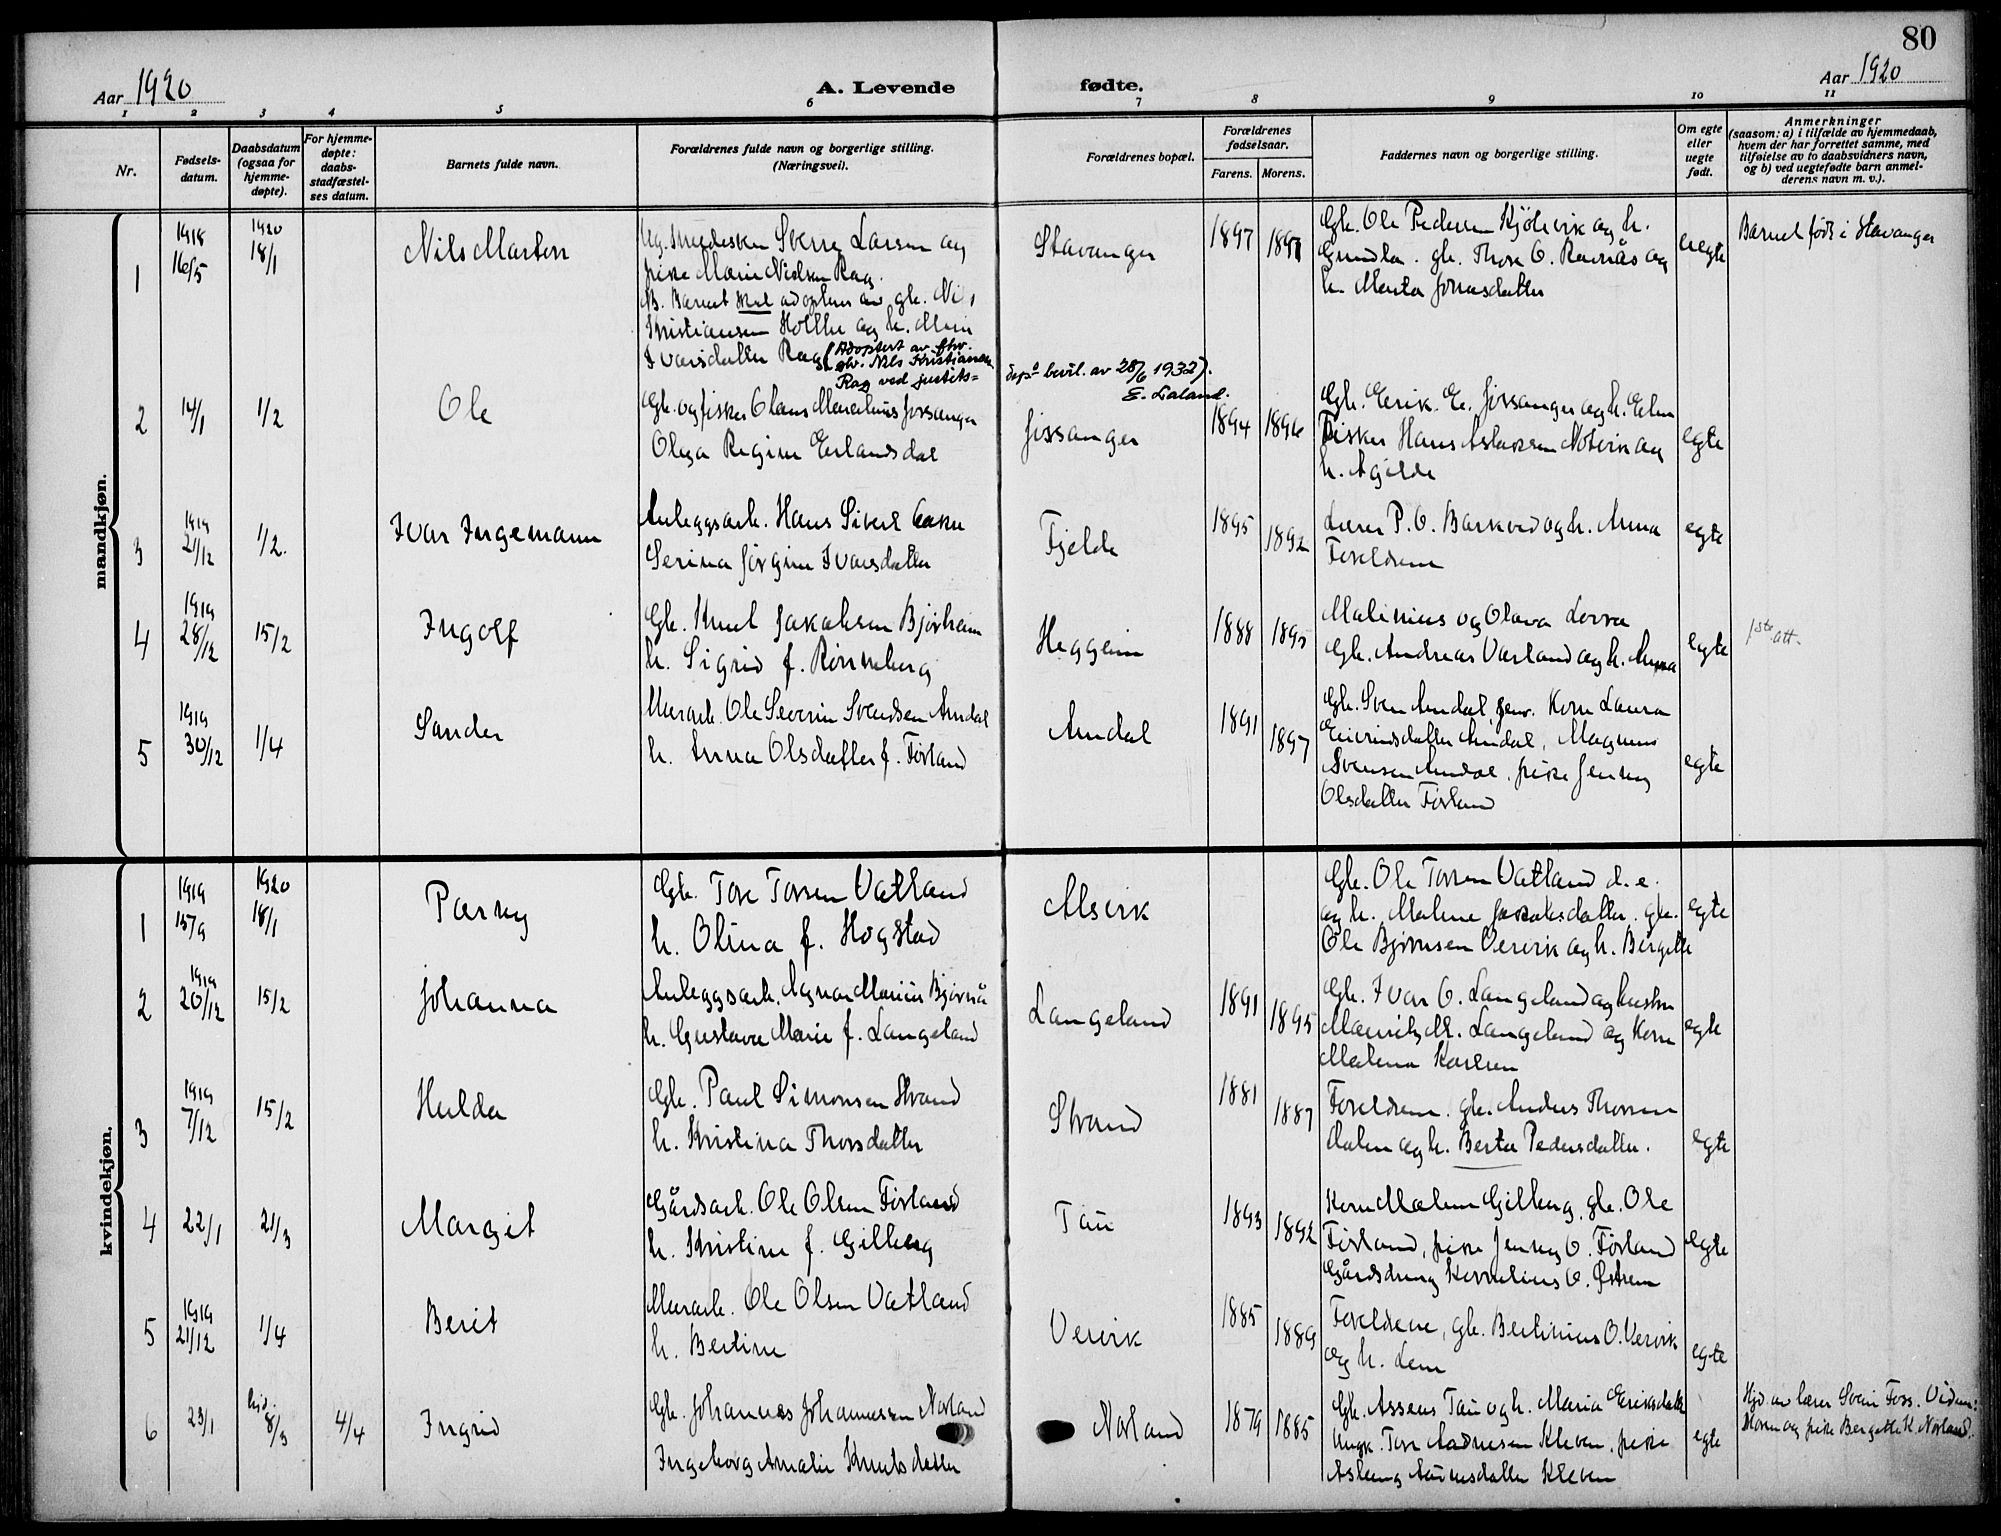 80
Aar 1920
A. Levende
fødte.
Aar 1920
1 2 3 4 5 6 7 8 9 10 11
Nr.
Fødsels-
datum.
Daabsdatum
(ogsaa for
hjemme-
døpte).
For hjemme-
døpte:
daabs-
stadfæstel-
ses datum.
Barnets fulde navn.
Forældrenes fulde navn og borgerlige stilling.
(Næringsvei).
Forældrenes bopæl.
Forældrenes
fødselsaar.
Farens. Morens.
Faddernes navn og borgerlige stilling.
Om egte
eller
uegte
født.
Anmerkninger
(saasom: a) i tilfælde av hjemmedaab,
hvem der har forrettet samme, med
tilføielse av to daabsvidners navn,
og b) ved uegtefødte barn anmel-
derens navn m. v.).
mandkjøn.
1
1918
16/5
1920
18/1
Nils Marton
Sverre Larsen og
pike Marie Nielsen Rag.
NB. Barnet skal adopteres av gbr. Nils
Kristiansen Holthe og h. Marie
Ivarsdatter Rag (Adoptert av fhv.
gbr. Nils Kristiansen
Rag ved justits=
dep. bevil. av 28/6 1932).
E. Laland.
Stavanger
1897
Gbr. Ole Pedersen Kjølevik og h.
Gundla. gbr. Thore O. Ramsås og
h. Marta Jonasdatter
uegte
Barnet født i Stavanger
2
14/1
1/2
Ole
Gbr. og fisker Olaus Marselius Jøssanger
Olga Regine Erlandsdal
Jøssanger
1894
1896
Gbr. Eerik. E. Jøssanger og h. Elen
Fisker Hans Aslaksen Notvik og
h. Agilde
egte
3
1919
21/12
1/2.
Ivar Ingemann
Anleggsarb. Hans Sivert
Serina Jørgine Ivarsdatter
Fjelde
1895
1892
Lærer P. O. Barkved og h. Anna
Foreldrene
egte
4
1919
28/12
15/2
Ingolf
Gbr. Knut Jakobsen Bjørheim
h. Sigrid f. Rønneberg
Heggeim
1888
1895
Malinius og Olava
Gbr. Andreas Varland og h. Anna
egte
1ste att.
5
1919
30/12
1/4
Sander
Murarb. Ole Severin Svendsen Amdal
h. Anna Olsdatter f. Førland
Amdal
1891
1897
Gbr. Sven Amdal, Kone Laura
Amdal, Magnus
Svensen Amdal, pike Jenny
Olsdatter Førland
egte
kvindekjøn.
1
1919
15/9
1920
18/1
Parny
Gbr. Tore Torsen Vatland
h. Olina f. Hogstad
Alsvik
Gbr. Ole Torsen Vatland d. e.
og h. Malene Jakobsdatter. gbr.
Ole Bjørnsen Vervik og h. Bergitte
egte
2
1919
20/12
15/2
Johanna
Anleggsarb. Agnar Marius Bjørnå
h. Gustava Marie f. Langeland
Langeland
1891
1895
Gbr. Ivar O. Langeland og hustru
Langeland og Kone
Malena Karlsen
egte
3
1919
7/12
15/2
Hulda
Gbr. Paul Simonsen Strand
h. Kristina Thorsdatter
Strand
1881
1887
Foreldrene. gbr. Anders Thorsen
Dalen og h. Berta Pedersdatter.
egte
4
22/1
21/3
Margit
Gårdsarb. Ole Olsen Førland
h. Kristine f. Gilberg
Tau
1893
1892
Kone Malene Gilberg, gbr. Ole
Førland, pike Jenny O. Førland
Gårdsdreng Kornelius O. Østrem
egte
5
1919
21/12
1/4
Berit
Murarb. Ole Olsen Vatland
h. Bertine
Vervik
1885
1889
Foreldrene, gbr. Bertinius O. Vervik
og h. Lene
egte
6
23/1
hjd.
8/3
4/4
Ingrid
Gbr. Johannes Johannesen Norland
Ingeborg Amalie Knutsdatter
Norland
1879
1885
Gbr. Assens Tau og h. Maria Eriksdatter
Ungk. Tore Aadnesen Kleven, pike
Aslaug Aanesdatter Kleven
egte
Hjd av lærer Svein Foss. Vidner:
Moren og pike Bergitte K. Norland.